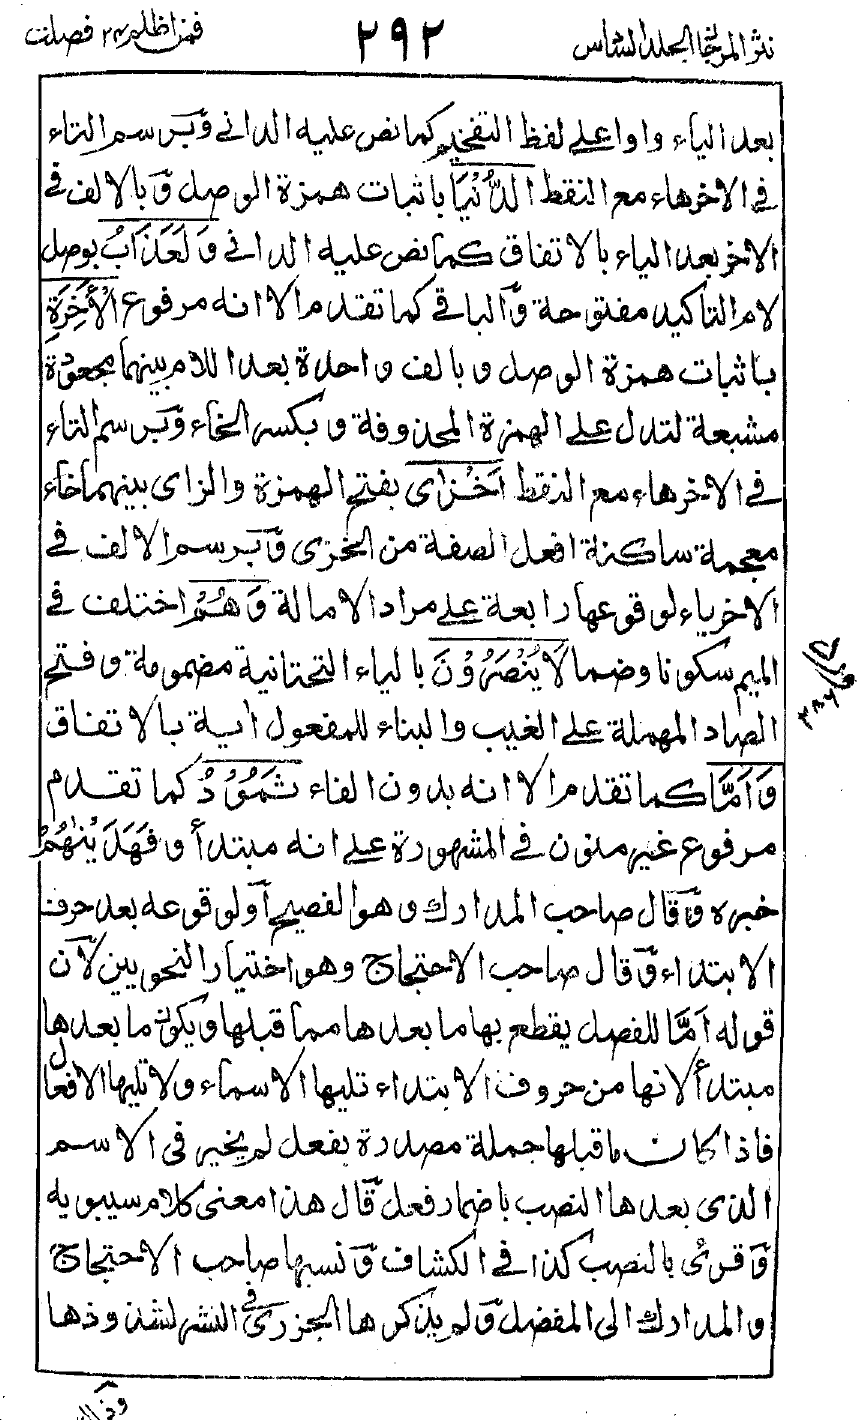 نثر المرجان الجلد السادس
٢٩٢
فمن اظلم ٢٤ فصلت
بعد الياء واوا على لفظ التفخيم كما نص عليه الداني وَبرسم التاء
في الاخرهاء مع النقط الدُّنْيَا باثبات همزة الوصل وَبالالف في
الاخر بعد الياء بالاتفاق كما نص عليه الداني وَلَعَذَابُ بوصل
لام التاكيد مفتوحة وَالباقي كما تقدم الا انه مرفوع الْأَخِرَةِ
باثبات همزة الوصل وبالف واحدة بعد اللام بينهما مجعودة
مشبعة لتدل على الهمزة المحذوفة وبكسر الخاء وَبرسم التاء
في الاخرهاء مع النقط اَخْزٰى بفتح الهمزة والزاى بينهما خاء
معجمة ساكنة افعل الصفة من الخزى وَبرسم الالف في
الاخرياء لوقوعها رابعة على مراد الامالة وَهُمْ اختلف في
الميم سكونا وضما لَا يُنْصَرُوْنَ بالياء التحتانية مضمومة وفتح
الصاد المهملة على الغيب والبناء للمفعول اية بالاتفاق
وَاَمَّا كما تقدم الا انه بدون الفاء ثَمُوْدُ كما تقدم
مرفوع غير منون في المشهورة على انه مبتدأ وفَهَدَيْنٰهُمْ
خبره وَقال صاحب المدارك وهو الفصيح أولوقوعه بعد حرف
الابتداء وَقال صاحب الاحتجاج وهو اختيار النحويين لأن
قوله اَمَّا للفصل يقطع بها ما بعدها مما قبلها ويكون ما بعدها
مبتدأ لانها من حروف الابتداء تليها الاسماء ولا تليها الافعال
فاذا كان ما قبلها جملة مصدرة بفعل لم يخير في الاسم
الذى بعدها النصب باضمار فعل قال هذا معنى كلام سيبويه
وَقرئ بالنصب كذا في الكشاف وَنسبها صاحب الاحتجاج
والمدارك الى المفضل وَلم يذكرها الجزرى في النشر لشذوذها